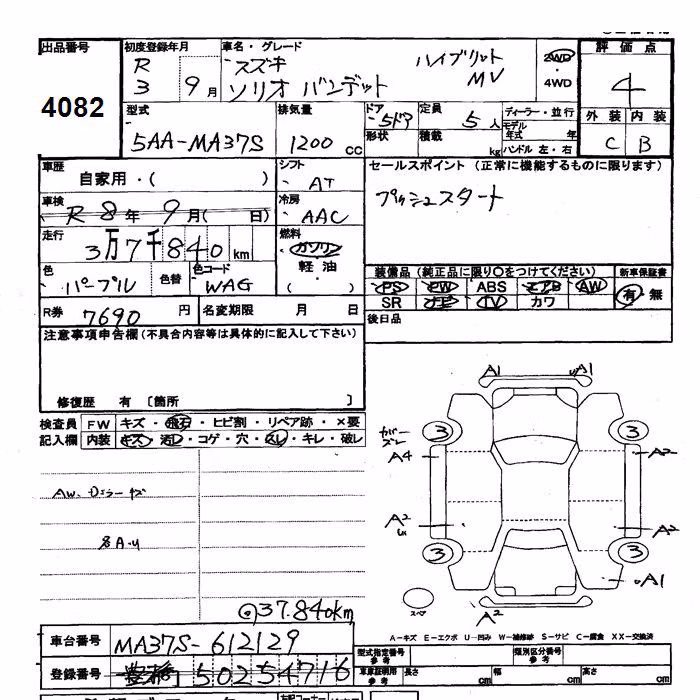 出品番号 初度登録年月 車名・グレード 評価点
R 3 9月 スズキ ソリオ バンデット ハイブリット MV 2WD ・ 4WD 4
4082
型式 排気量 ドア 定員 ディーラー・並行 外装 内装
5AA-MA37S 1200 cc 5ドア 5人 モデル年式 年 C B
形状 積載 kg ハンドル 左・右
車歴 自家用・( ) シフト AT セールスポイント(正常に機能するものに限ります)
車検 R 8年 9月( 日) 冷房 AAC プッシュスタート
走行 3万7千840km 燃料 ガソリン
軽・油
( )
色 パープル 色替 色コード WAG
装備品(純正品に限り○をつけてください) 新車保証書
PS PW ABS エアB AW 有・無
SR ナビ TV カワ
R券 7690円 名変期限 月 日 後日品
注意事項申告欄(不具合内容等は具体的に記入して下さい)
修復歴 有〔箇所 〕
検査員 FW キズ・飛石・ヒビ割・リペア跡・×要
記入欄 内装 キズ・汚レ・コゲ・穴・スレ・キレ・破レ
A1 A1
3 3
カバーズレ
A4 A2
A2 A2
3 3
A1
スペア A2
@37.840km
A-キズ E-エクボ U-凹み W-補修跡 S-サビ C-腐食 XX-交換済
車台番号 MA37S-612129
型式指定番号 参考 類別区分番号 参考
登録番号 豊橋 502 54716
車庫証明用 参考 長さ cm 幅 cm 高さ cm